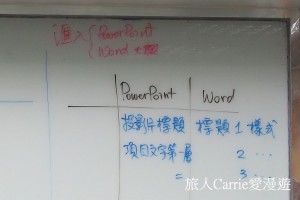 匯入 PowerPoint
Word 大綱
PowerPoint Word
投影片標題 標題 1 樣式
項目文字第一層 2 ...
= 3 ...
旅人Carrie愛漫遊